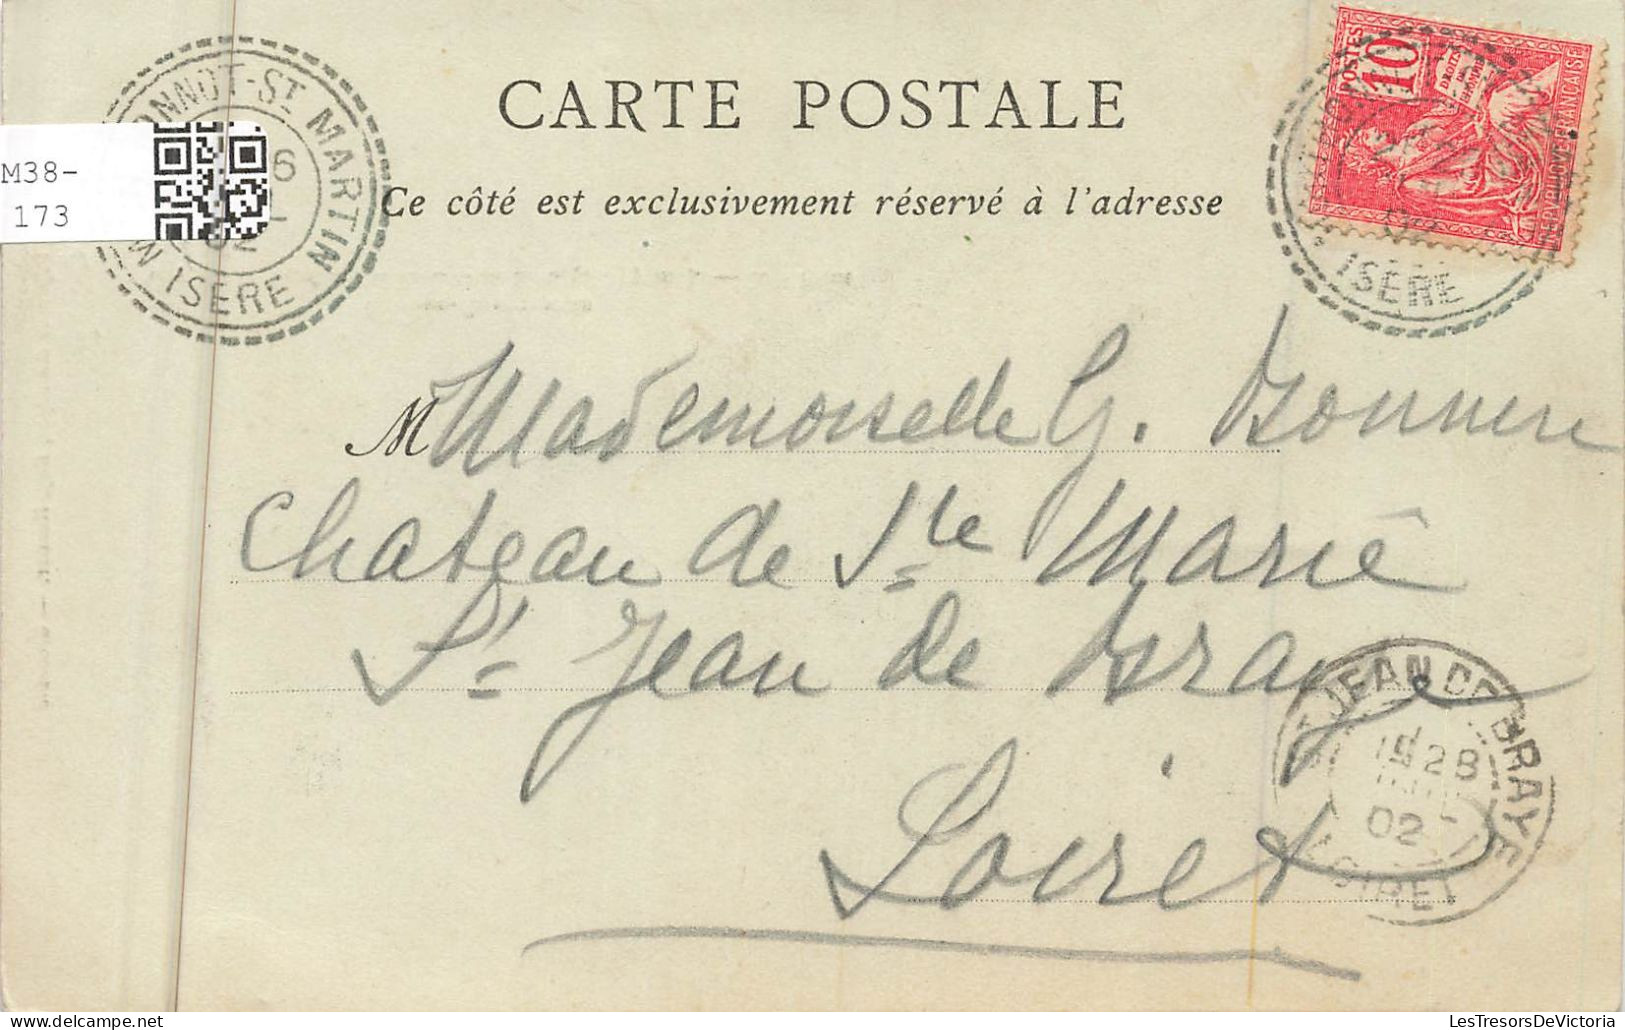 CARTE POSTALE
Ce côté est exclusivement réservé à l'adresse
M Mademoiselle G. Bonnere
Chateau de Ste Marie
St Jean de Braye
Loiret
ONNOT-ST MARTIN
6
02
ISERE
M38-
173
POSTES
10
DROITS
DE
L'HOMME
REPUBLIQUE FRANÇAISE
ISERE
ST JEAN DE BRAYE
28
02
LOIRET
LesTresorsDeVictoria
www.delcampe.net